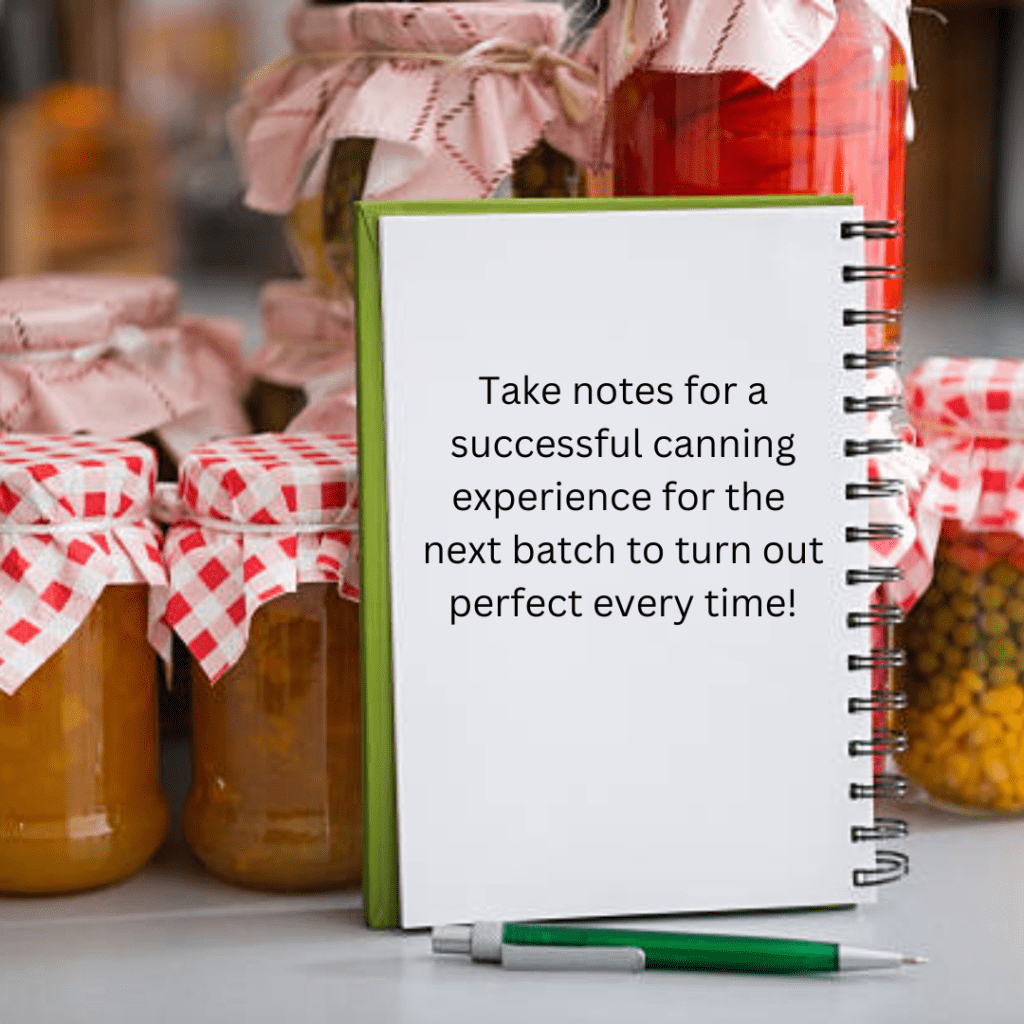 Take notes for a
successful canning
experience for the
next batch to turn out
perfect every time!